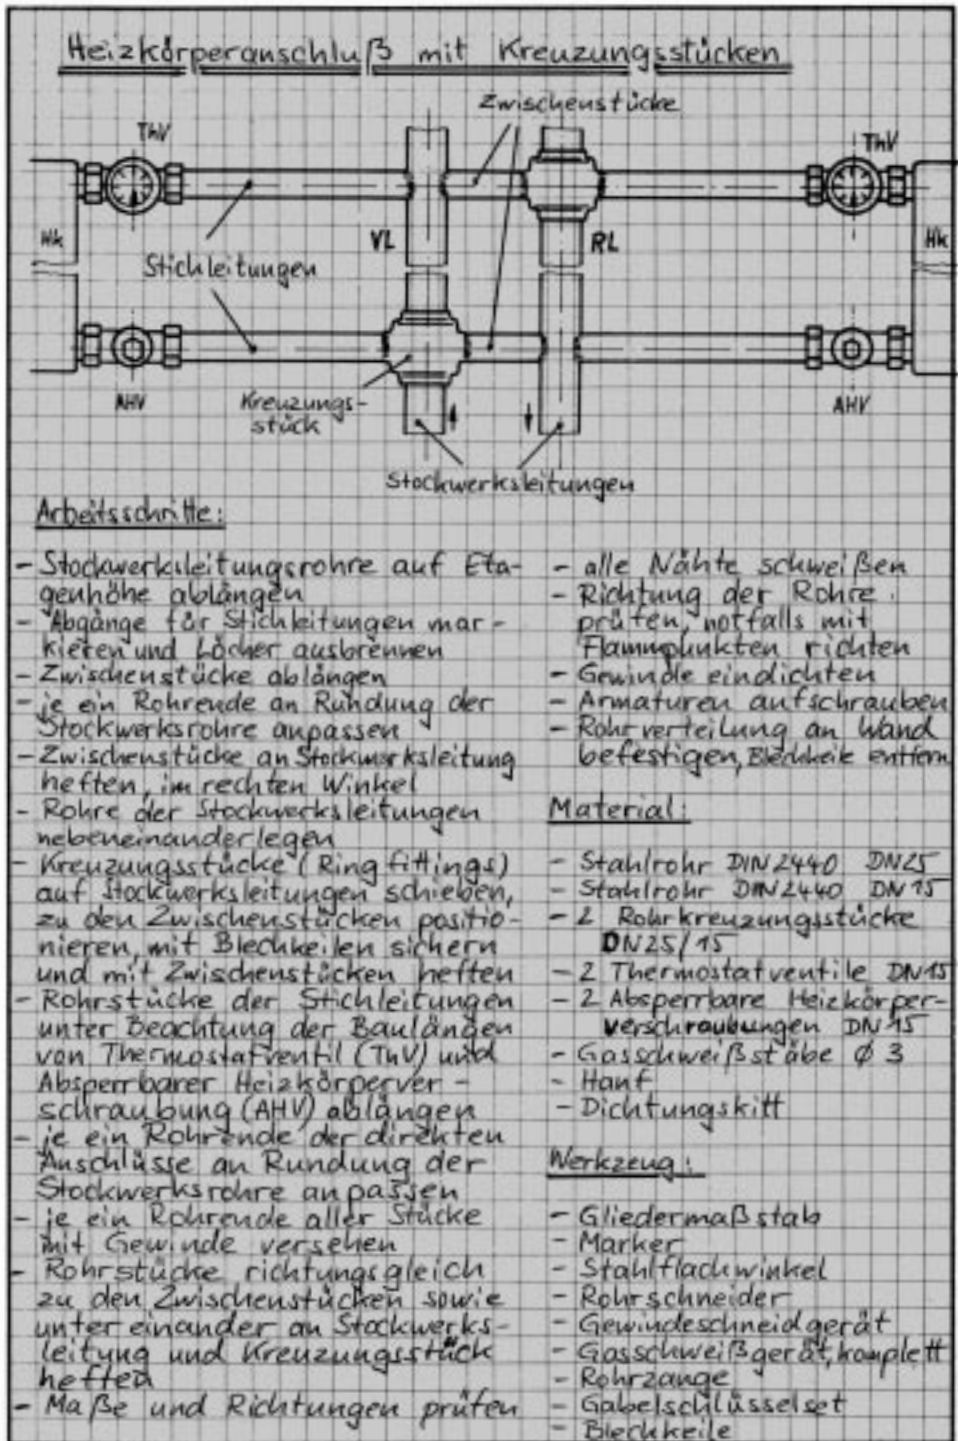 Heizkörperanschluß mit Kreuzungsstücken
Zwischenstücke
ThV
ThV
Hk
VL
RL
Hk
Stichleitungen
AHV
Kreuzungs-
stück
AHV
Stockwerksleitungen
Arbeitsschritte:
- Stockwerksleitungsrohre auf Eta-
genhöhe ablängen
- Abgänge für Stichleitungen mar-
kieren und Löcher ausbrennen
- Zwischenstücke ablängen
- je ein Rohrende an Rundung der
Stockwerksrohre anpassen
- Zwischenstücke an Stockwerksleitung
heften, im rechten Winkel
- Rohre der Stockwerksleitungen
nebeneinanderlegen
- Kreuzungsstücke (Ringfittings)
auf Stockwerksleitungen schieben,
zu den Zwischenstücken positio-
nieren, mit Blechkeilen sichern
und mit Zwischenstücken heften
- Rohrstücke der Stichleitungen
unter Beachtung der Baulängen
von Thermostatventil (ThV) und
Absperrbarer Heizkörperver-
schraubung (AHV) ablängen
- je ein Rohrende der direkten
Anschlüsse an Rundung der
Stockwerksrohre anpassen
- je ein Rohrende aller Stücke
mit Gewinde versehen
- Rohrstücke richtungsgleich
zu den Zwischenstücken sowie
untereinander an Stockwerks-
leitung und Kreuzungsstück
heften
- Maße und Richtungen prüfen
- alle Nähte schweißen
- Richtung der Rohre
prüfen, notfalls mit
Flammpunkten richten
- Gewinde eindichten
- Armaturen aufschrauben
- Rohrverteilung an Wand
befestigen, Blechkeile entfern
Material:
- Stahlrohr DIN 2440 DN25
- Stahlrohr DIN 2440 DN15
- 2 Rohrkreuzungsstücke
DN25/15
- 2 Thermostatventile DN15
- 2 Absperrbare Heizkörper-
verschraubungen DN15
- Gasschweißstäbe Ø 3
- Hanf
- Dichtungskitt
Werkzeug:
- Gliedermaßstab
- Marker
- Stahlflachwinkel
- Rohrschneider
- Gewindeschneidgerät
- Gasschweißgerät, komplett
- Rohrzange
- Gabelschlüsselset
- Blechkeile